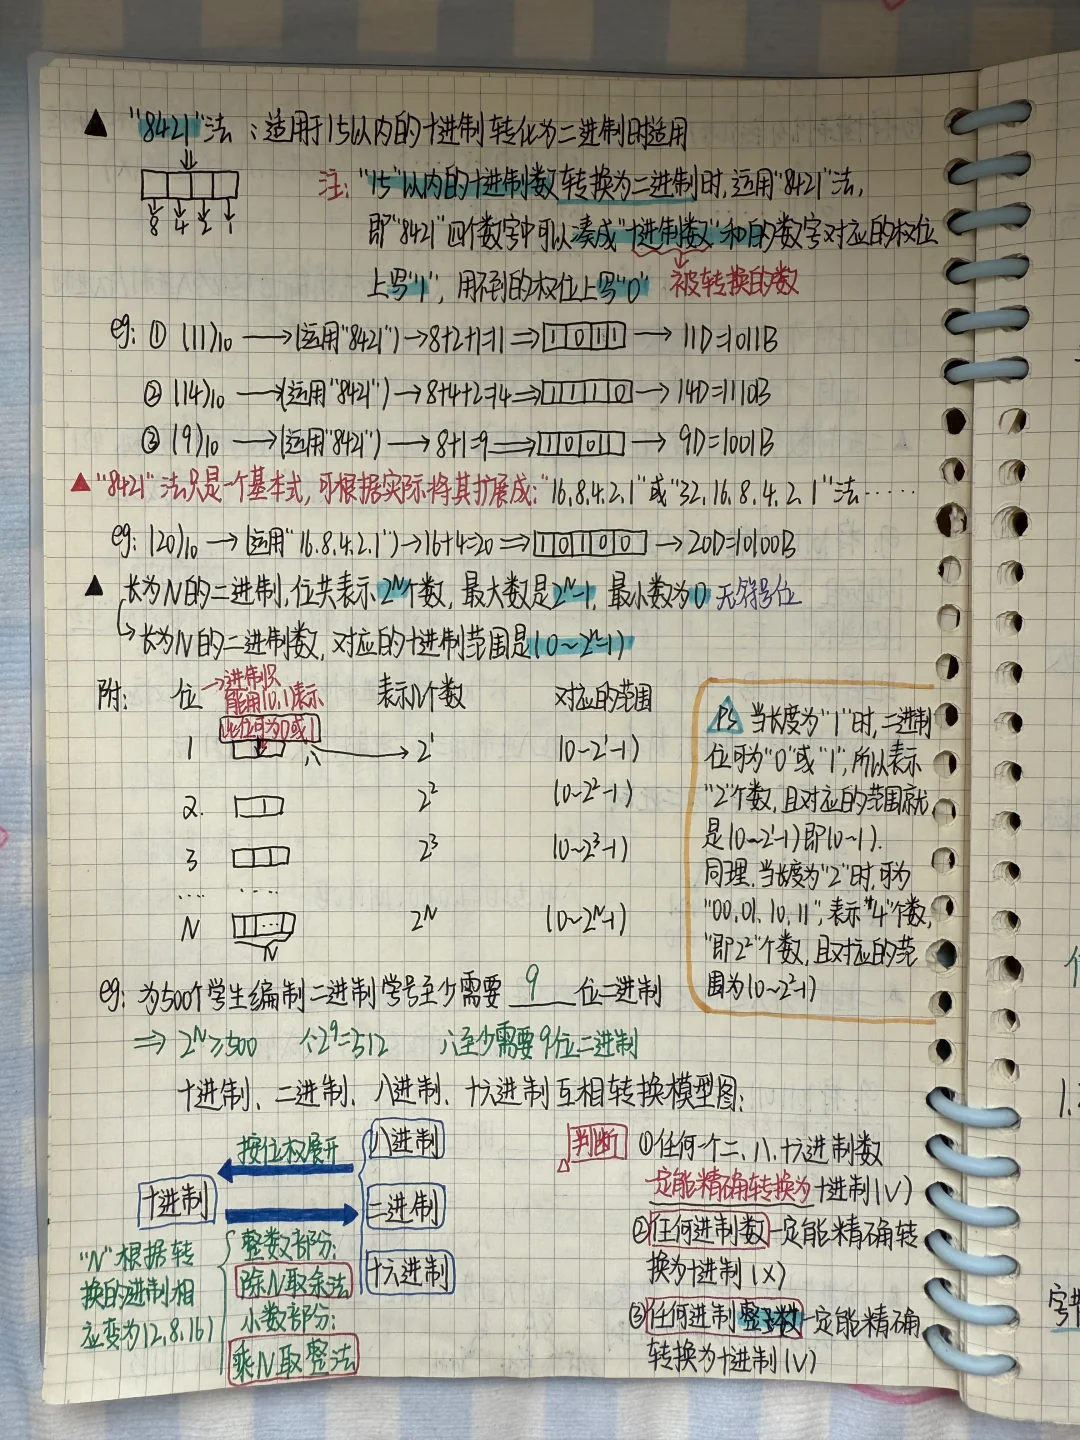 ▲ "8421"法：适用于15以内的十进制转化为二进制时适用
8 4 2 1
注："15"以内的十进制数转换为二进制时,运用"8421"法,
即"8421"四个数字中可以凑成"十进制数"和的数字对应的权位
上写"1"，用不到的权位上写"0" 被转换的数
eg: ① (11)₁₀ → (运用"8421") → 8+2+1=11 ⇒ 1 0 1 1 → 11D=1011B
② (14)₁₀ → (运用"8421") → 8+4+2=14 ⇒ 1 1 1 0 → 14D=1110B
③ (9)₁₀ → (运用"8421") → 8+1=9 ⇒ 1 0 0 1 → 9D=1001B
▲"8421"法只是一个基本式,可根据实际将其扩展成:"16.8.4.2.1"或"32.16.8.4.2.1"法……
eg: (20)₁₀ → (运用"16.8.4.2.1") → 16+4=20 ⇒ 1 0 1 0 0 → 20D=10100B
▲ 长为N的二进制,位共表示2ᴺ个数,最大数是2ᴺ-1,最小数为0 无符号位
↳长为N的二进制数,对应的十进制范围是(0~2ᴺ-1)
附: 位 →进制只能用10,1表示 表示几个数 对应的范围
此位可为0或1
1 2¹ (0~2¹-1)
2. 2² (0~2²-1)
3 2³ (0~2³-1)
…. ….
N 2ᴺ (0~2ᴺ-1)
N
PS 当长度为"1"时,二进制
位可为"0"或"1",所以表示
"2"个数,且对应的范围就
是(0~2¹-1)即(0~1).
同理.当长度为"2"时,可为
"00,01,10,11",表示"4"个数,
"即2²"个数,且对应的范
围为(0~2²-1)
eg: 为500个学生编制二进制学号至少需要 9 位二进制
⇒ 2ᴺ≥500 ∵2⁹=512 ∴至少需要9位二进制
十进制、二进制、八进制、十六进制互相转换模型图:
按位权展开
十进制
八进制
二进制
十六进制
"N"根据转
换的进制相
应变为(2,8,16)
整数部分:
除N取余法
小数部分:
乘N取整法
判断 ①任何一个二、八、十六进制数
一定能精确转换为十进制(√)
②任何进制数一定能精确转
换为十进制(×)
③任何进制整数一定能精确
转换为十进制(√)